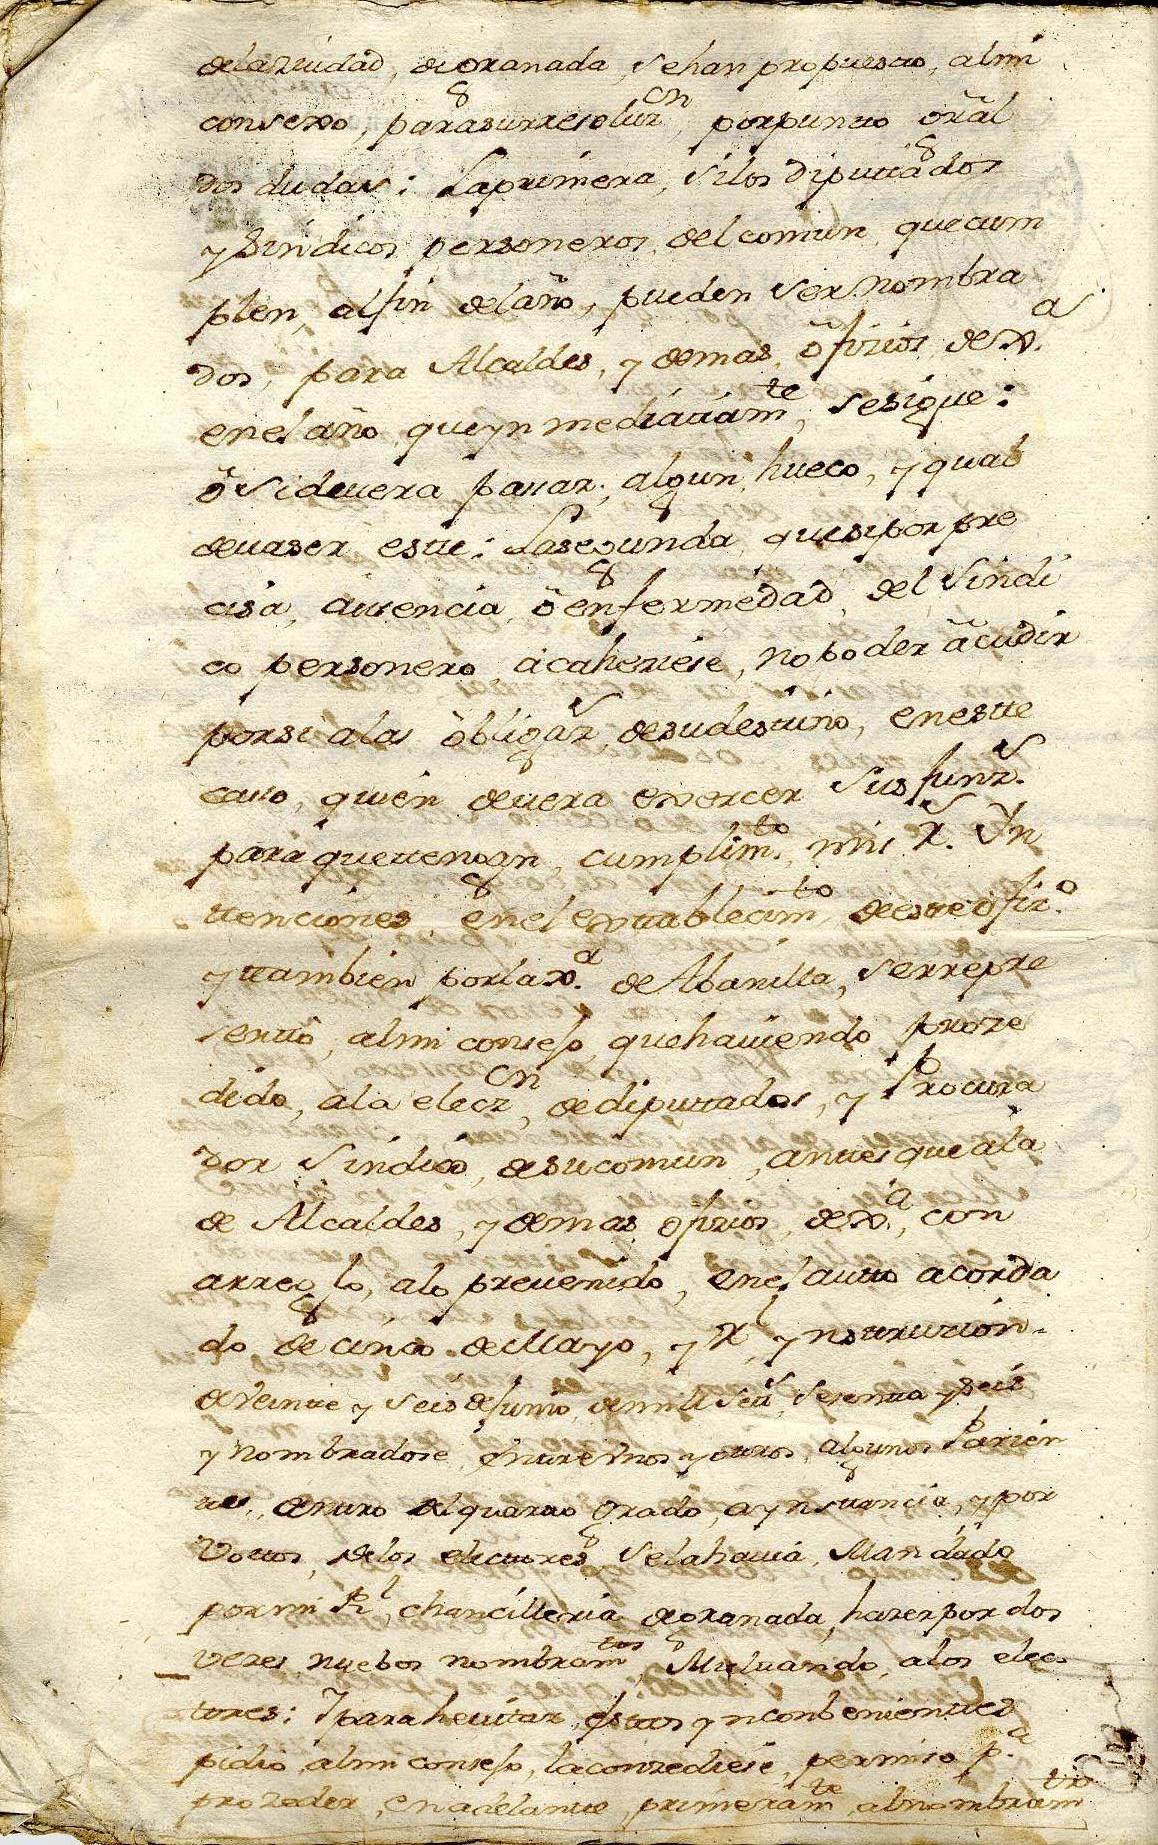 delaziudad, degranada, sehan propuesto, almi
consexo, parasurresoluzcn, porpunto gral
dos dudas: Laprimera, silos diputtados
y Sindicos personeros, del comun, quecum
plen, alfin delaño, pueden ser nombra
dos, para Alcaldes, y demas ofizios de Ra.
enelaño queynmediatamte, sesigue:
ô sidevera passar, algun, hueco, y qual
devaser estte: Lasegunda, quesiporpre
cisa, aussencia, ô enfermedad, del Sindi
co personero, acaheziese, nopoder âcudir
porsi alas obligazs, desudesttino, enestte
casso, quien devera exercer sus funzs.
para quettengan, cumplimto. mis Rs. Yn
ttenciones, enel esttablecimto, deestteofizo.
y ttambien porlaxa. de Abanilla, serrepre
sentto, almi consejo, quehaviendo proze
dido, ala eleczcn, dedeputtados, y Procura
dor Sindico, desucomun, anttes queala
de Alcaldes, y demas ofizios, de Ra., con
arreglo, alo prevenido, enel autto acorda
do de cinco de Mayo, y Rl, ynstruccion
deVeintte y seis deJunio, demill settzs, sesentta y seis
y nombradose, enttre Unos y ottros, algunos Parien
ttes, denttro delquartto Grado, aynstancia, y por
Vottos, delos electtores, selahavia, Mandado
pormi Rl, chancilleria degranada, hazerpordos
vezes, nuebos nombramtos, Multando, alos elec
tores: Ypara hevitar, esttos ynconbenienttes
pidio almi consejo, laconzediese, permiso pa.
prozeder, enadelantte, primeramte, alnombramto